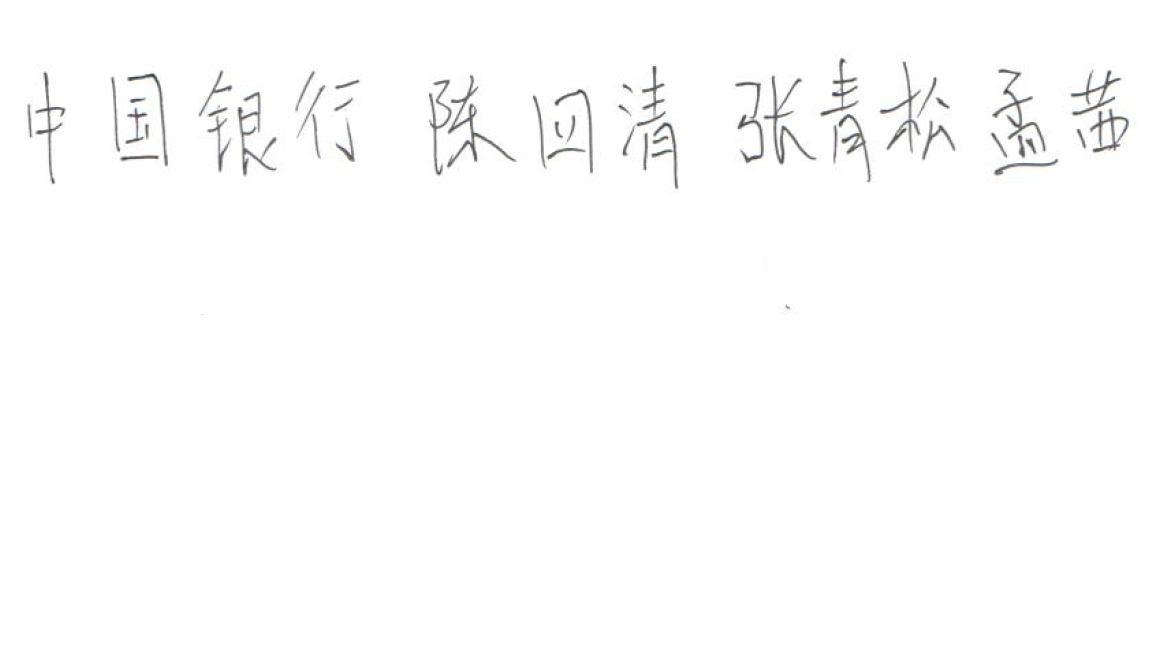 中国银行 陈四清 张青松孟茜